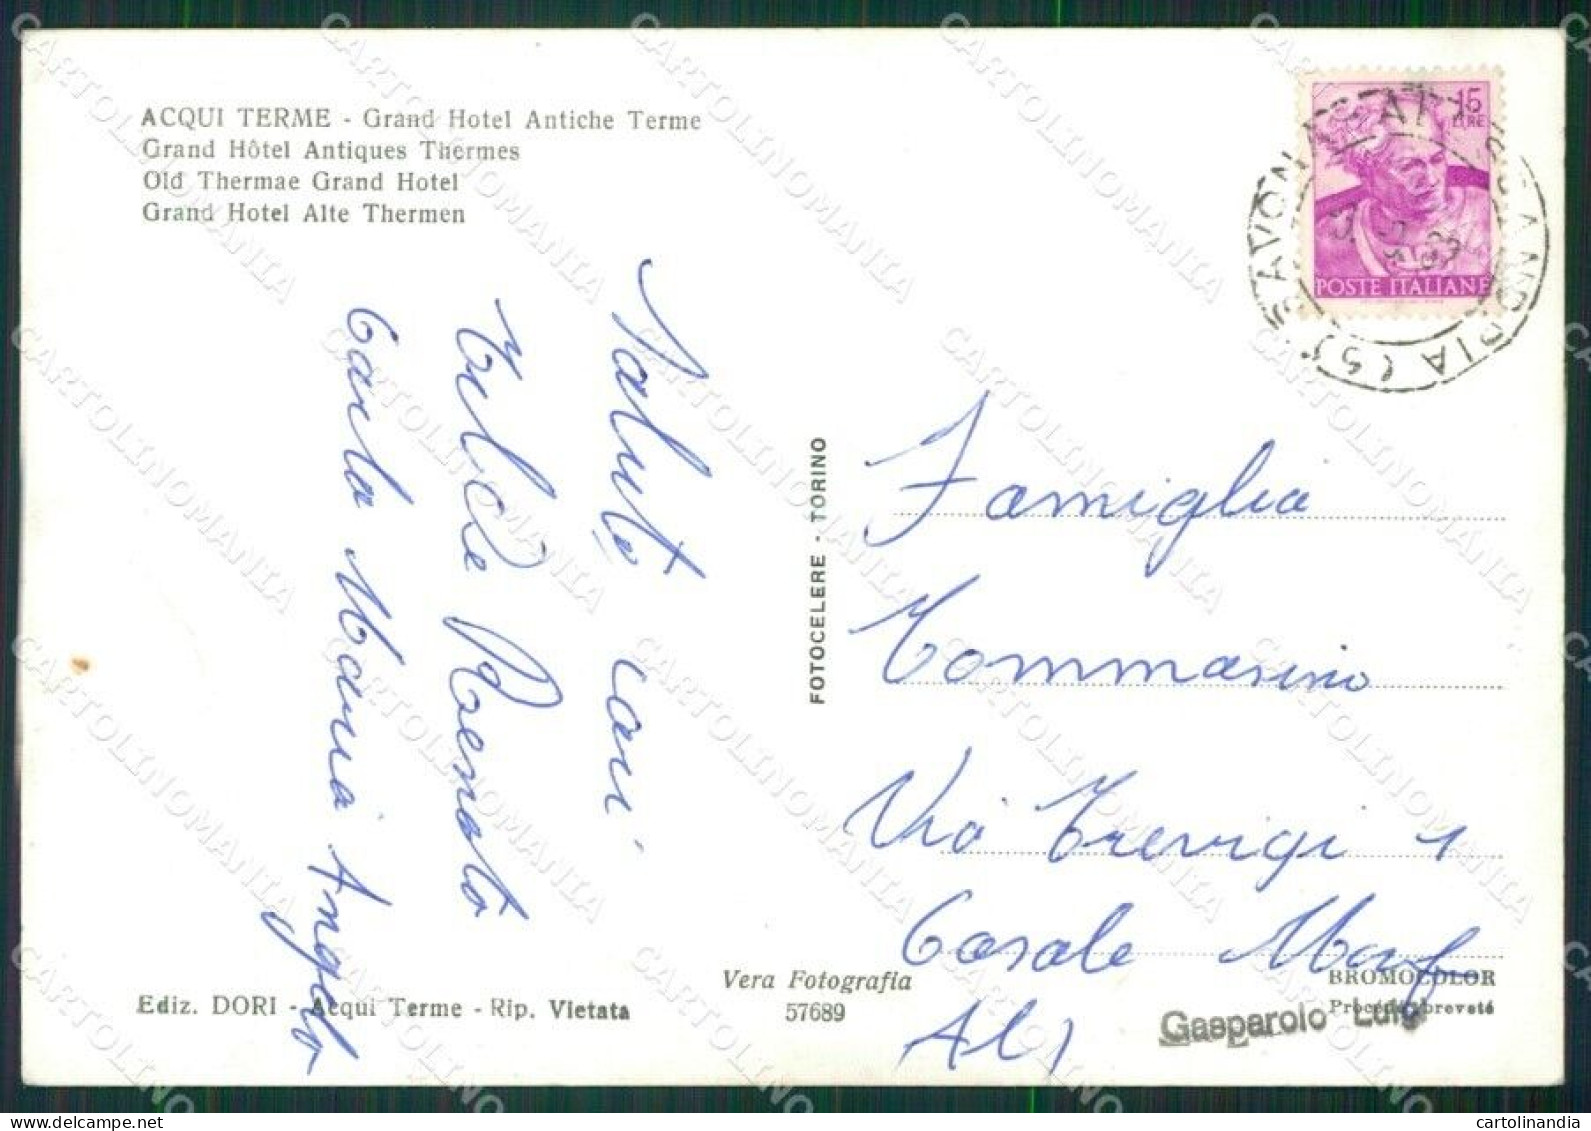 ACQUI TERME - Grand Hotel Antiche Terme
Grand Hôtel Antiques Thermes
Old Thermae Grand Hotel
Grand Hotel Alte Thermen
15
LIRE
POSTE ITALIANE
Saluti cari
Felice Renato
Carla Maria Angela
FOTOCELERE - TORINO
Famiglia
Tommasino
Via Trevigi 1
Casale Monf
AL)
Vera Fotografia
57689
Ediz. DORI - Acqui Terme - Rip. Vietata
BROMOCOLOR
Procédé breveté
Gasparolo Luigi
CARTOLINOMANIA
cartolinandia